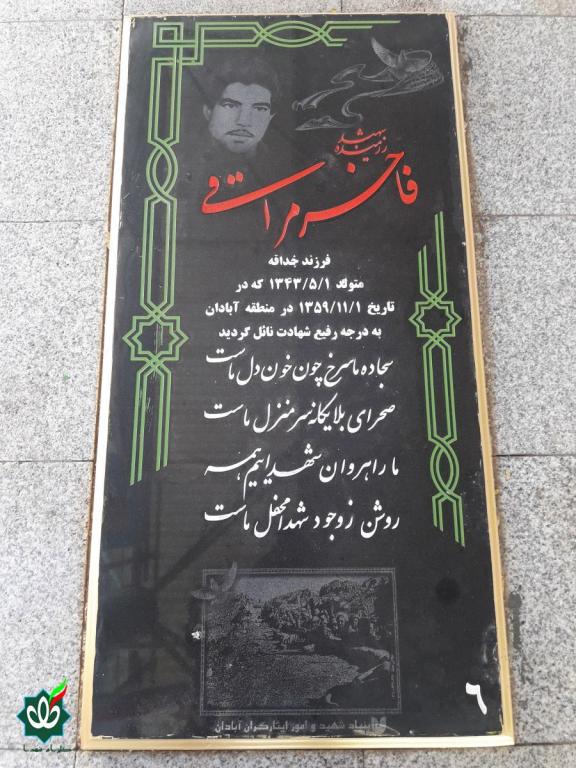 شهید
رزمنده
فاخر مراقی
فرزند خداقه
متولد ۱۳۴۳/۵/۱ که در
تاریخ ۱۳۵۹/۱۱/۱ در منطقه آبادان
به درجه رفیع شهادت نائل گردید
سجاده ما سرخ چون خون دل ماست
صحرای بلا یگانه سرمنزل ماست
ما راهروان شهدائیم همه
روشن ز وجود شهدا محفل ماست
بنیاد شهید و امور ایثارگران آبادان
۶